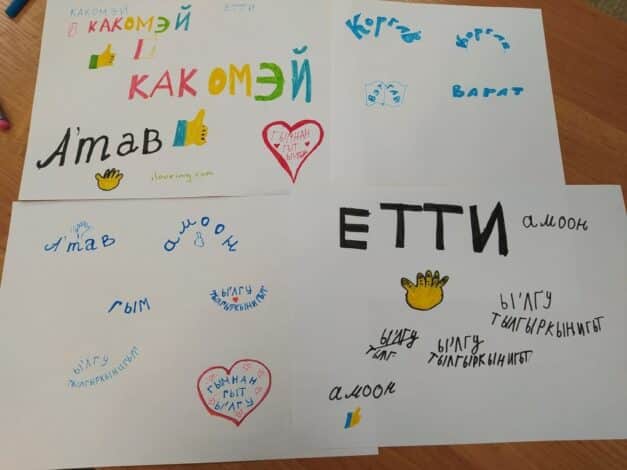 КАКОМЭЙ
ЕТТИ
КАКОМЭЙ
КАКОМЭЙ
А'тав
ГЫМНАН
ГЫТ
Ы'ЛГУ
ilovering.com
Коргав
Коргав
ВАГАТ
А'тав
амоон
гым
Ы'ЛГУ
ТЫЛГЫРКЫНИГЫТ
Ы'ЛГУ
ТЫЛГЫРКЫНИГЫТ
ГЫМНАН
ГЫТ
Ы'ЛГУ
ЕТТИ
амоон
Ы'ЛГУ
ТЫЛГЫРКЫНИГЫТ
Ы'ЛГУ
ТЫЛГ
Ы'ЛГУ
ТЫЛГЫРКЫНИГЫТ
амоон